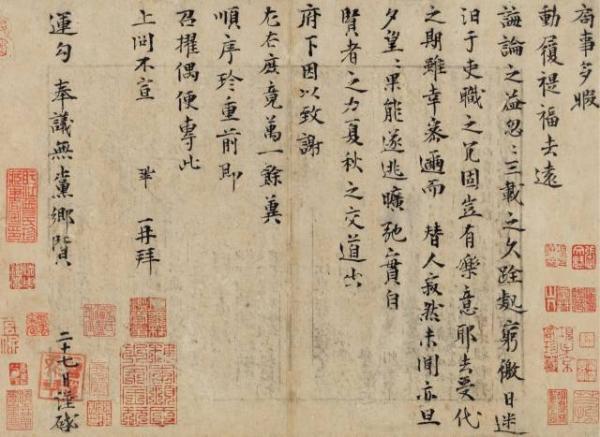 局事多暇
動履禔福去遠
誨論之益忽〻三載之久跧處窮徼日迷
汨于吏職之冗固豈有樂意耶去受代
之期雖幸密邇而替人寂然未聞亦旦
夕望〻果能遂逃曠弛實自
賢者之力夏秋之交道出
府下因以致謝
左右庶竟萬一餘冀
順序珍重前即
召擢偶便專此
上問不宣 鞏再拜
運勾奉議無黨鄉賢 二十七日謹啟